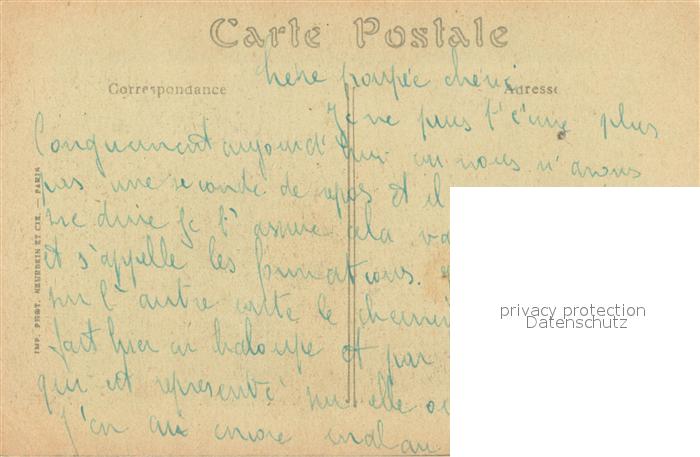 Carte Postale
Correspondance
Adresse
chère poupée chérie
Je ne puis t'écrire plus
longuement aujourd'hui on nous n'avons
pas une seconde de repos et il
me dire je t'assure cela va
et s'appelle les formations.
sur l'autre carte le chemin
fait hier en chaloupe et par
qui est représenté sur elle
J'en ai encore mal au
IMP. PHOT. NEURDEIN ET CIE. — PARIS
privacy protection
Datenschutz